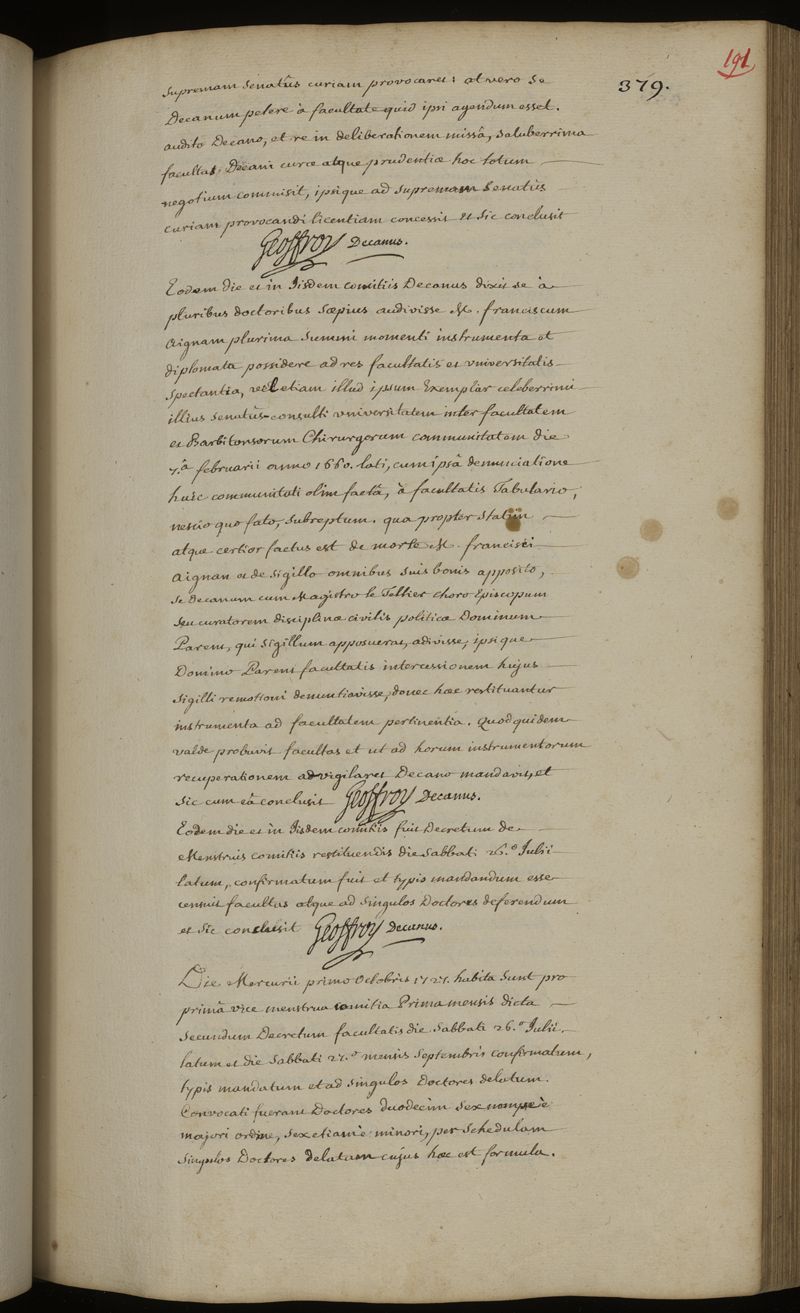 191
379.
supremam Senatûs curiam provocaret : at vero se
Decanum petere à facultate quid ipsi agendum esset.
audito Decano, et re in deliberationem missâ, saluberrima
facultas Decani curæ atque prudentiæ hoc totum
negotium commisit, ipsique ad supremam Senatûs
curiam provocandi licentiam concessit et sic conclusit
Geoffroy Decanus.
Eodem die et in Iisdem comitiis Decanus dixit se à
pluribus doctoribus sæpius audivisse M. franciscum
Aignan plurima summi momenti instrumenta et
diplomata possidere ad res facultatis et vniversitatis
spectantia, vel etiam illud ipsum Exemplar celeberrimi
illius Senatûs-consulti vniversitatem inter facultatem
et Barbitonsorum Chirurgorum communitatem die
7.â februarii anno 1660. lati, cum ipsâ denunciatione
huic communitati olim factâ, à facultatis Tabulario,
nescio quo fato, subreptum. qua propter statim
atque certior factus est de morte M. francisci
Aignan et de sigillo omnibus suis bonis apposito,
se decanum cum Magistro le Tellier Choro Episcopum
seu curatorem disciplinæ civilis politicæ Dominum
Parent, qui sigillum apposuerat, adivisse, ipsique
Domino Parent facultatis intercessionem hujus
sigilli remotioni denuntiavisse, donec hæc restituantur
instrumenta ad facultatem pertinentia. Quod quidem
valde probavit facultas et ut ad horum instrumentorum
recuperationem advigilaret Decano mandavit, et
sic cum eâ conclusit Geoffroy Decanus.
Eodem die et in Iisdem comitiis fuit Decretum de
Menstruis comitiis restituendis die Sabbati 26.â Julii
latum, confirmatum fuit et typis mandandum esse
censuit facultas atque ad singulos Doctores deferendum
et sic conclusit Geoffroy Decanus.
Die Mercurii primo Octobris 1727. habita sunt pro
primâ vice menstrua comitia Prima mensis dicta
secundum Decretum facultatis die Sabbati 26.â Julii
latum et die Sabbati 27.â mensis Septembris confirmatum,
typis mandatum et ad singulos Doctores delatum.
Convocati fuerant Doctores duodecim sex nempe è
majori ordine, sex etiam è minori, per schedulam
singulos Doctores delatam cujus hæc est formula.